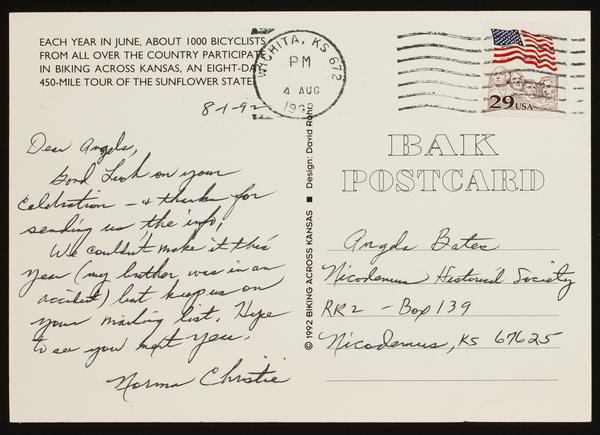 EACH YEAR IN JUNE, ABOUT 1000 BICYCLISTS
FROM ALL OVER THE COUNTRY PARTICIPATE
IN BIKING ACROSS KANSAS, AN EIGHT-DAY
450-MILE TOUR OF THE SUNFLOWER STATE.
WICHITA, KS 672
PM
4 AUG
1992
29 USA
8-1-92
Dear Angela,
Good Luck on your
Celebration - & thanks for
sending us the info,
We couldn't make it this
year (my brother was in an
accident) but keep us on
your mailing list. Hope
to see you next year.
Norma Christie
© 1992 BIKING ACROSS KANSAS ■ Design: David
BAK
POSTCARD
Angela Bates
Nicodemus Historical Society
RR2 - Box 139
Nicodemus, KS 67625